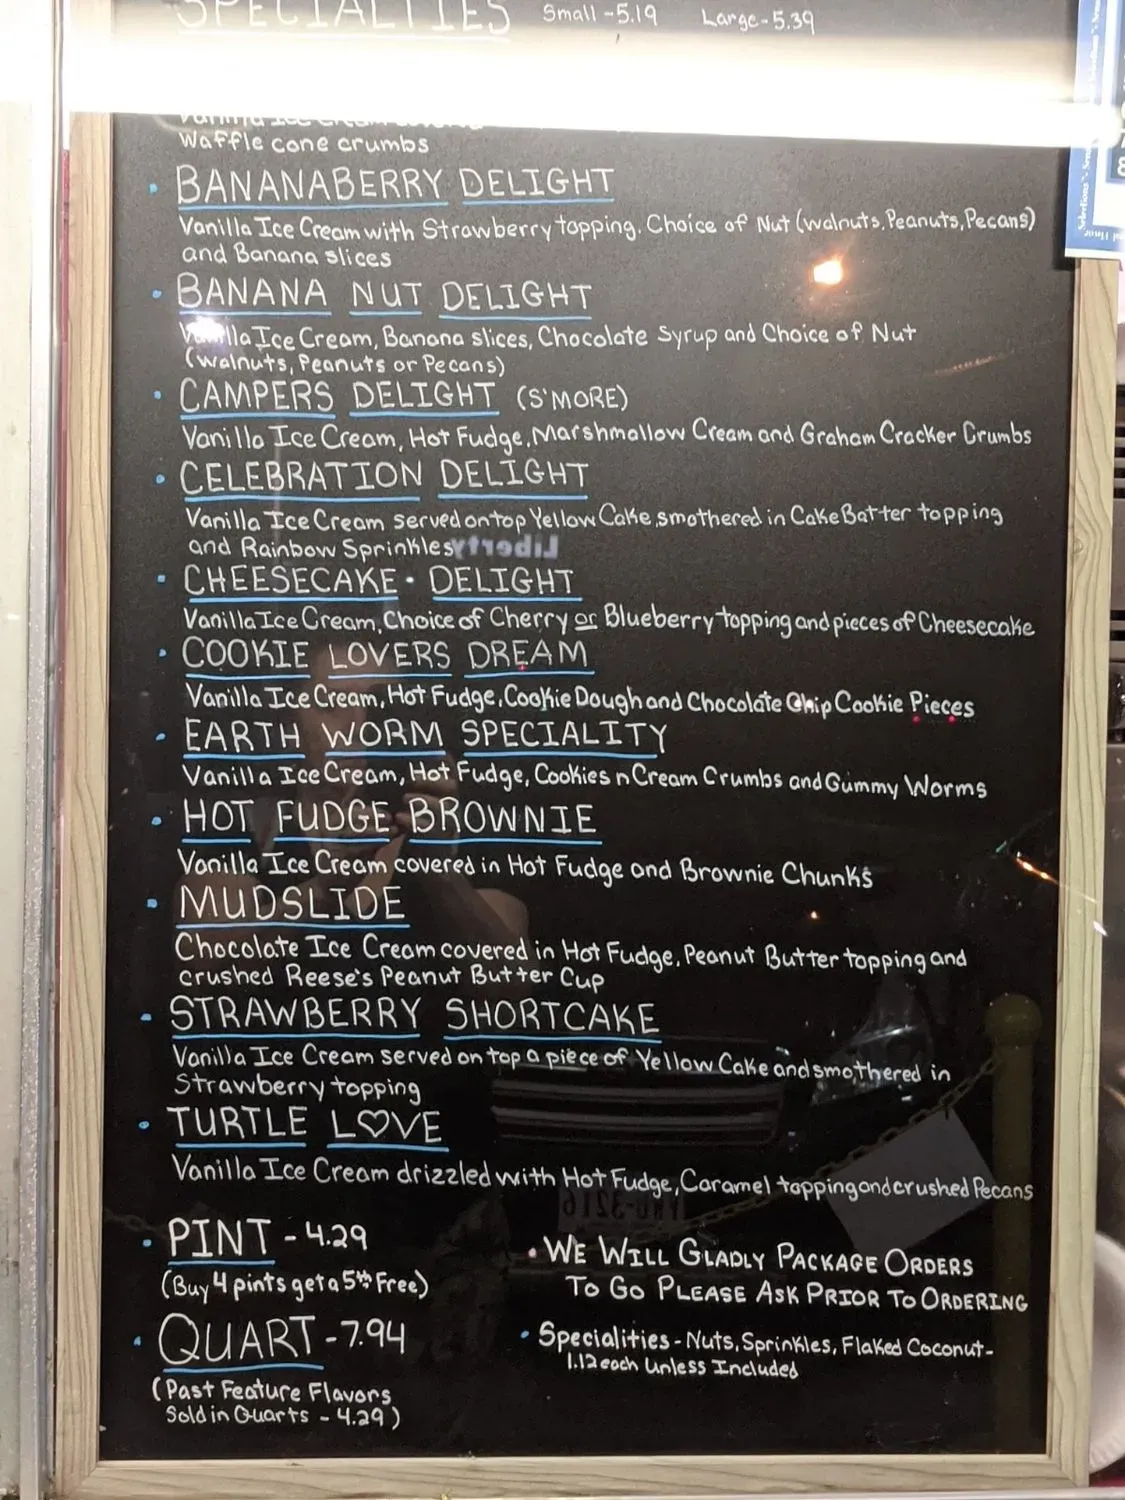 SPECIALTIES Small - 5.19 Large - 5.39
Vanilla Ice Cream
Waffle cone crumbs
• BANANABERRY DELIGHT
Vanilla Ice Cream with Strawberry topping, Choice of Nut (walnuts, Peanuts, Pecans)
and Banana slices
• BANANA NUT DELIGHT
Vanilla Ice Cream, Banana slices, Chocolate Syrup and Choice of Nut
(walnuts, Peanuts or Pecans)
• CAMPERS DELIGHT (S'MORE)
Vanilla Ice Cream, Hot Fudge, Marshmallow Cream and Graham Cracker Crumbs
• CELEBRATION DELIGHT
Vanilla Ice Cream served on top Yellow Cake, smothered in Cake Batter topping
and Rainbow Sprinkles
Liberty
• CHEESECAKE • DELIGHT
Vanilla Ice Cream, Choice of Cherry or Blueberry topping and pieces of Cheesecake
• COOKIE LOVERS DREAM
Vanilla Ice Cream, Hot Fudge, Cookie Dough and Chocolate Chip Cookie Pieces
• EARTH WORM SPECIALITY
Vanilla Ice Cream, Hot Fudge, Cookies n Cream Crumbs and Gummy Worms
• HOT FUDGE BROWNIE
Vanilla Ice Cream covered in Hot Fudge and Brownie Chunks
• MUDSLIDE
Chocolate Ice Cream covered in Hot Fudge, Peanut Butter topping and
crushed Reese's Peanut Butter Cup
• STRAWBERRY SHORTCAKE
Vanilla Ice Cream served on top a piece of Yellow Cake and smothered in
Strawberry topping
• TURTLE L♡VE
Vanilla Ice Cream drizzled with Hot Fudge, Caramel topping and crushed Pecans
• PINT - 4.29
(Buy 4 pints get a 5th Free)
• QUART - 7.94
(Past Feature Flavors
Sold in Quarts - 4.29)
• WE WILL GLADLY PACKAGE ORDERS
TO GO PLEASE ASK PRIOR TO ORDERING
• Specialities - Nuts, Sprinkles, Flaked Coconut -
1.12 each Unless Included